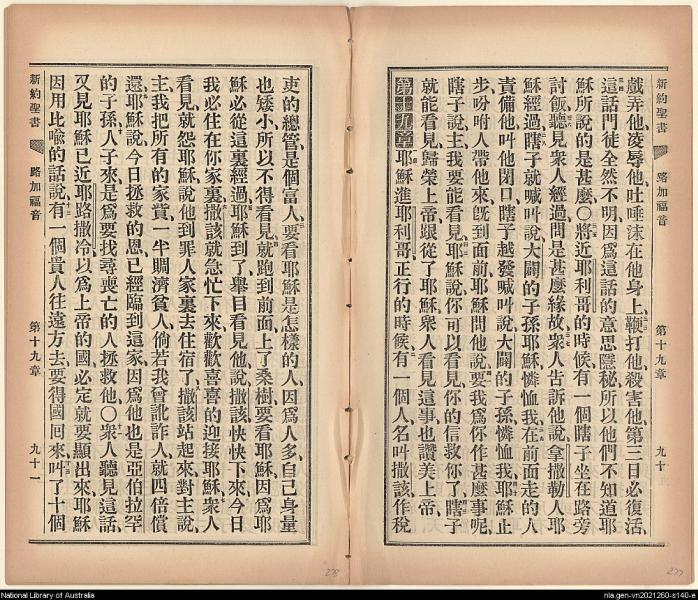 新約聖書 路加福音 第十九章 九十
戲弄他、凌辱他、吐唾沫在他身上、鞭打他、殺害他、第三日必復活、
這話門徒全然不明、因爲這話的意思隱秘、所以他們不知道耶
穌所說的是甚麼○將近耶利哥的時候、有一個瞎子坐在路旁
討飯、聽見眾人經過、問是甚麼緣故、眾人告訴他說、拿撒勒人耶
穌經過、瞎子就喊叫說、大闢的子孫耶穌、憐恤我、在前面走的人
責備他、叫他閉口、瞎子越發喊叫說、大闢的子孫、憐恤我、耶穌止
步、吩咐人帶他來、旣到面前、耶穌問他說、要我爲你作甚麼事呢、
瞎子說、主、我要能看見、耶穌說、你可以看見、你的信救你了、瞎子
就能看見、歸榮上帝、跟從了耶穌、眾人看見這事、也讚美上帝、
第十九章 耶穌進耶利哥、正行的時候、有一個人、名叫撒該、作稅
新約聖書 路加福音 第十九章 九十一
吏的總管、是個富人、要看耶穌是怎樣的人、因爲人多、自己身量
也矮小、所以不得看見、就跑到前面、上了桑樹、要看耶穌、因爲耶
穌必從這裏經過、耶穌到了、舉目看見他、說、撒該、快快下來、今日
我必住在你家裏、撒該就急忙下來、歡歡喜喜的迎接耶穌、眾人
看見就怨耶穌說、他到罪人家裏去住宿了、撒該站起來對主說、
主、我把所有的家貲、一半賙濟貧人、倘若我曾訛詐人、就四倍償
還、耶穌說、今日拯救的恩、已經臨到這家、因爲他也是亞伯拉罕
的子孫、人子來、是爲要找尋喪亡的人拯救他○眾人聽見這話、
又見耶穌已近耶路撒冷、以爲上帝的國必定就要顯出來、耶穌
因用比喻的話說、有一個貴人往遠方去、要得國囘來、叫了十個
278
277
National Library of Australia
nla.gen-vn2021260-s140-e